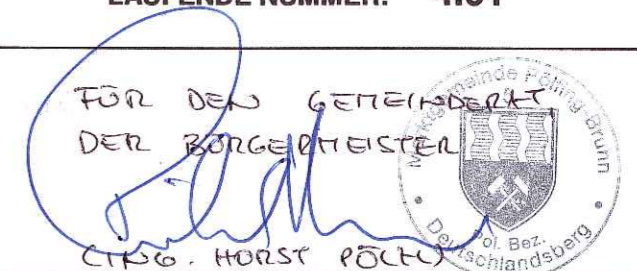 LAUFENDE NUMMER: 4.01
FÜR DEN GEMEINDERAT
DER BÜRGERMEISTER
(ING. HORST PÖLZL)
Marktgemeinde Pölfing-Brunn
Pol. Bez.
Deutschlandsberg